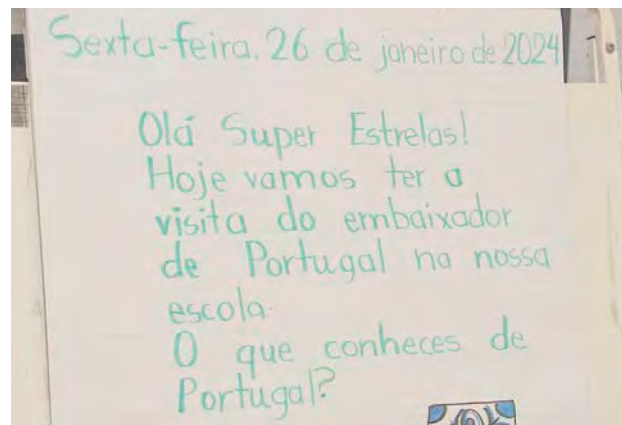 Sexta-feira, 26 de janeiro de 2024
Olá Super Estrelas!
Hoje vamos ter a
visita do embaixador
de Portugal na nossa
escola.
O que conheces de
Portugal?